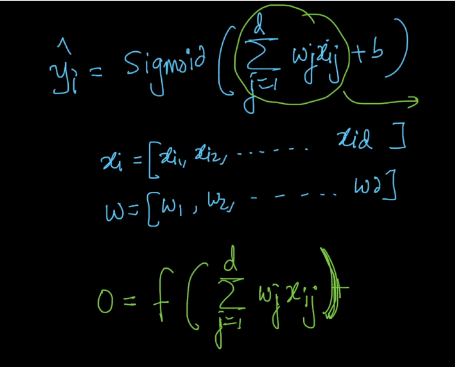 ŷi = Sigmoid ( d∑j=1 wj xij + b )
xi = [xi1, xi2, ...... xid ]
w = [w1, w2, - - ..... wd]
O = f ( d∑j=1 wj xij ) +